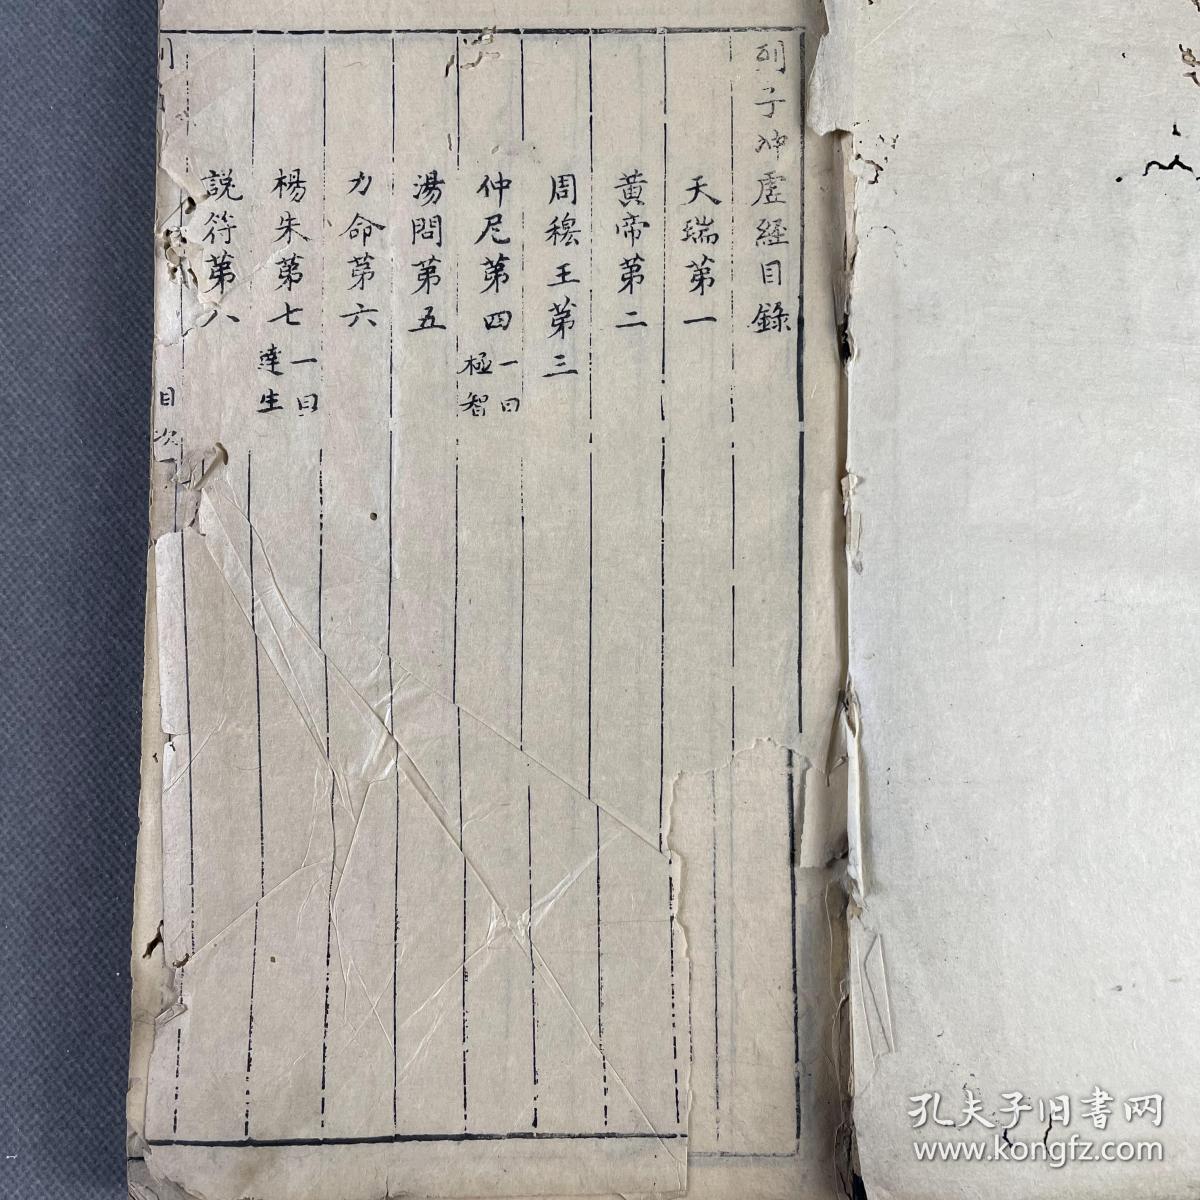 列子冲虛經目錄
天瑞第一
黃帝第二
周穆王第三
仲尼第四 一曰極智
湯問第五
力命第六
楊朱第七 一曰達生
說符第八
列
目次
孔夫子旧書网
www.kongfz.com